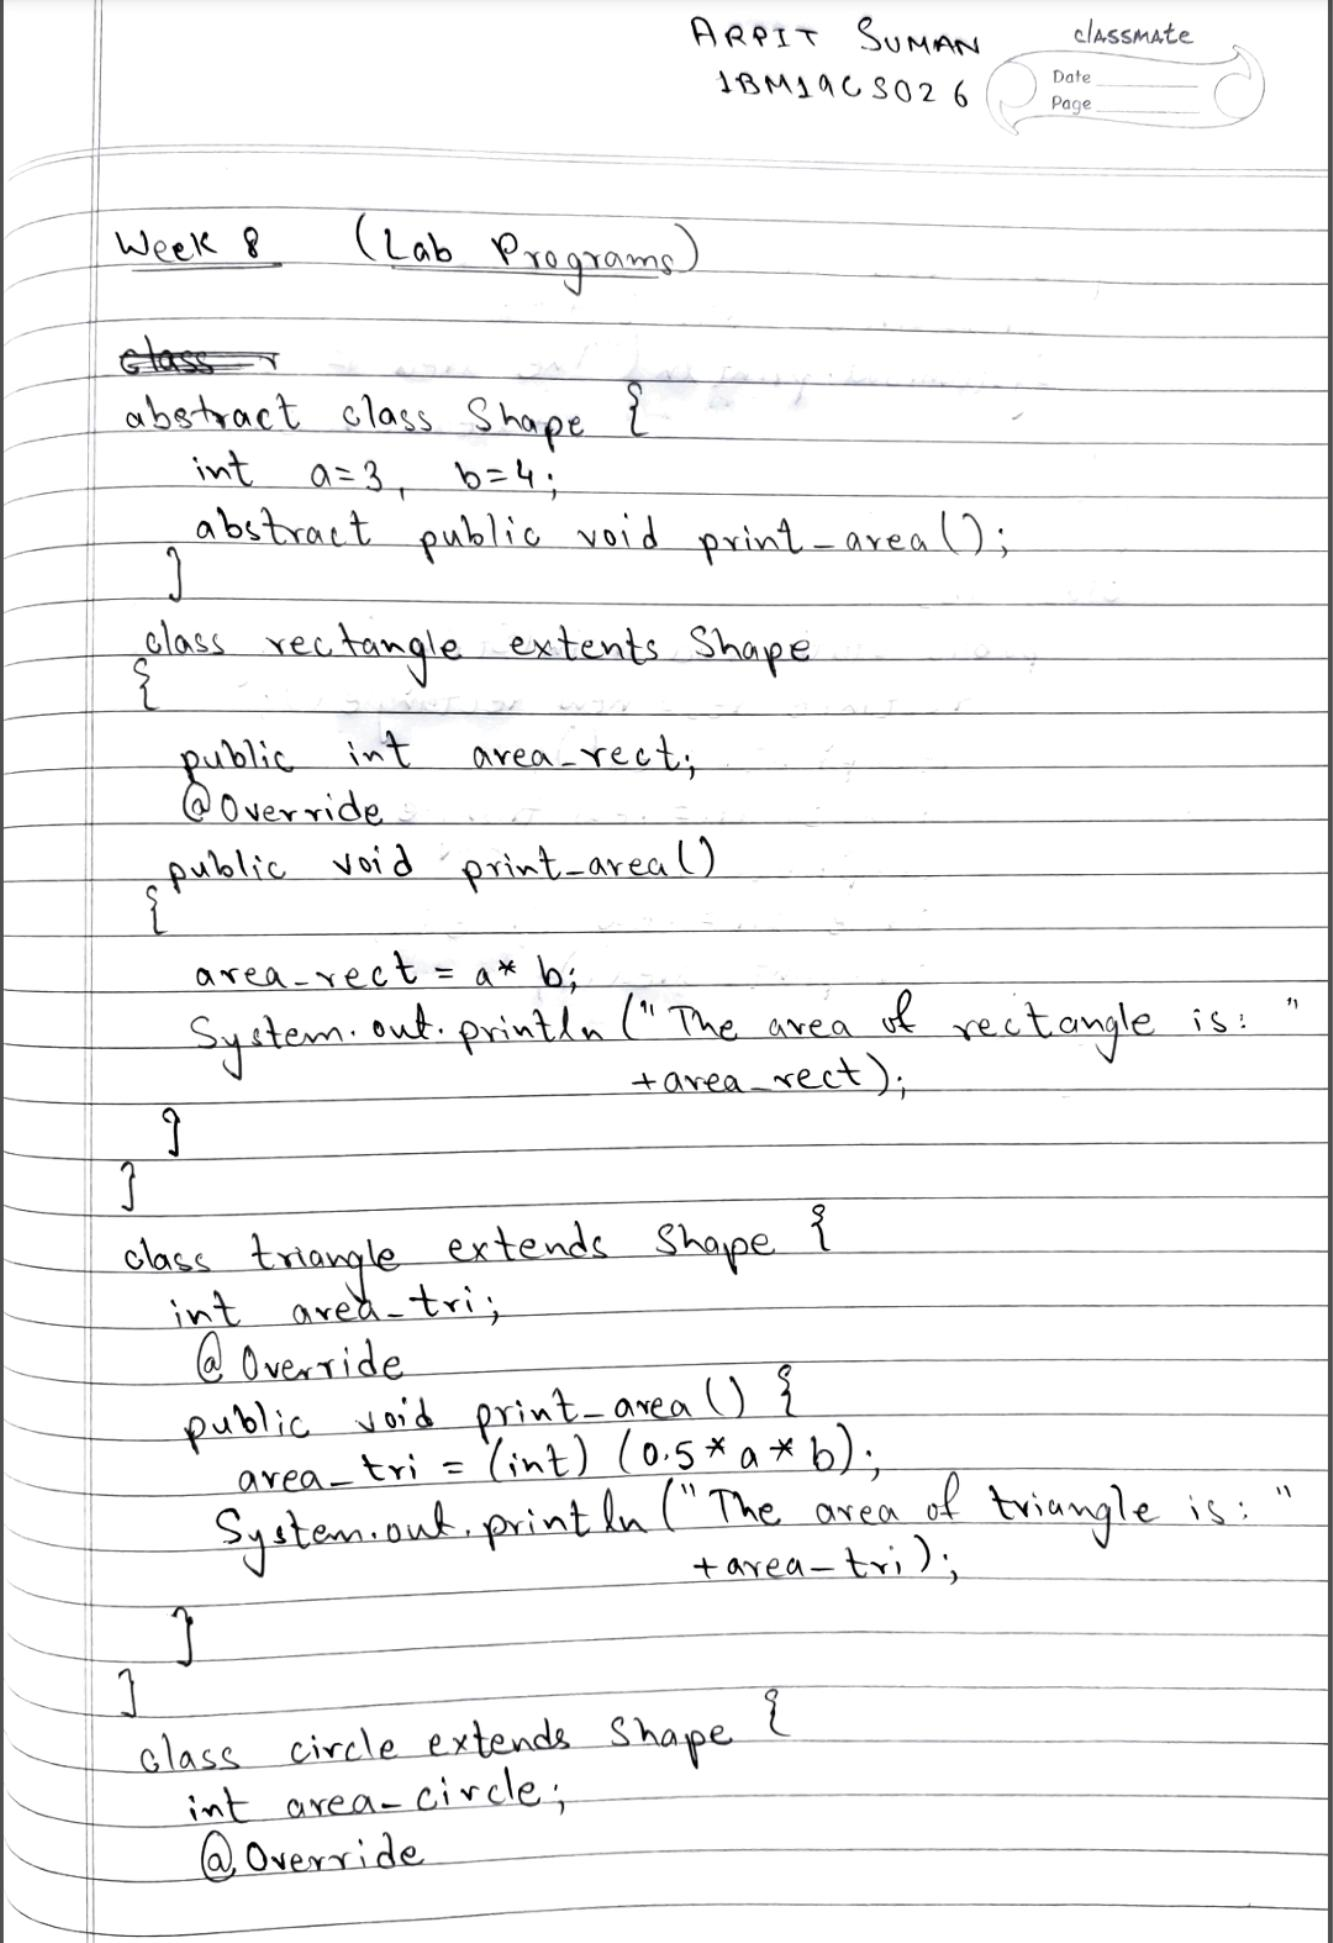 ARPIT SUMAN
classmate
1BM19CS026
Date
Page
Week 8 (Lab Programs)
class
abstract class Shape {
int a=3, b=4;
abstract public void print_area();
}
class rectangle extents Shape
{
public int area_rect;
@Override
public void print_area()
{
area_rect = a* b;
System.out.println ("The area of rectangle is: "
+area_rect);
}
}
class triangle extends Shape {
int area_tri;
@Override
public void print_area() {
area_tri = (int) (0.5*a*b);
System.out.println ("The area of triangle is: "
+area_tri);
}
}
class circle extends Shape {
int area_circle;
@Override